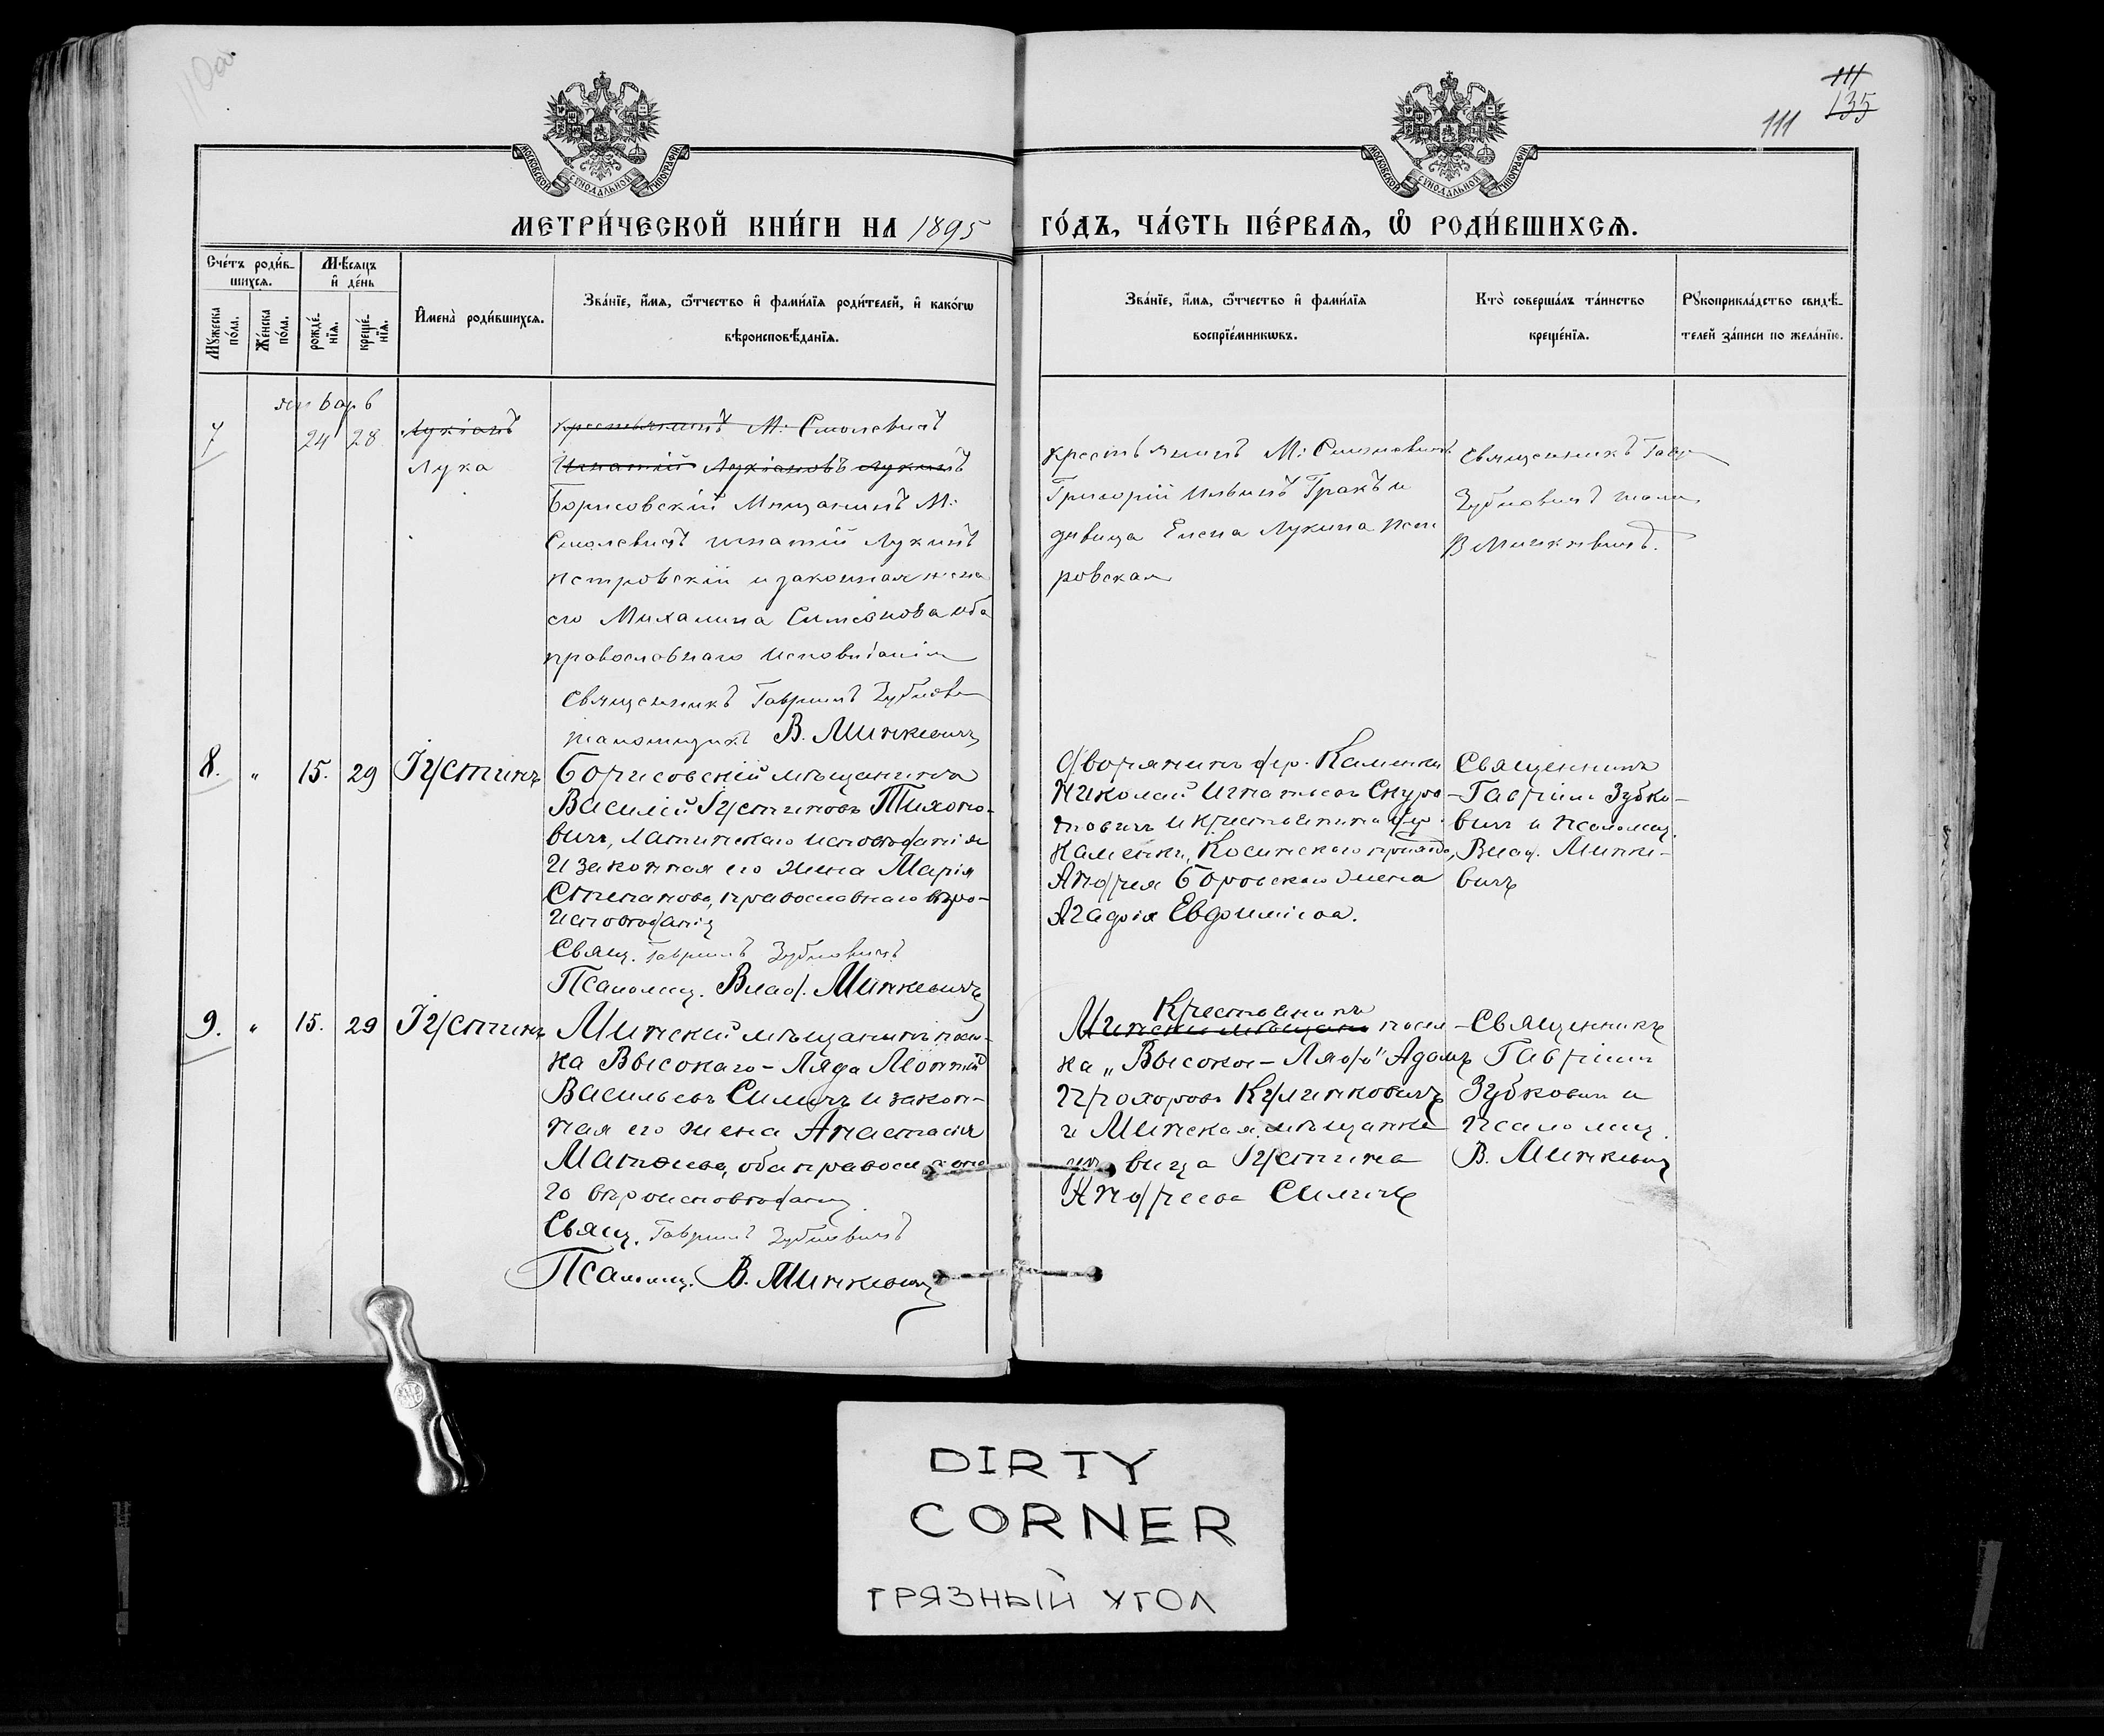 110об.
111
135
111
МОСКОВСКОЙ СѴНОДАЛЬНОЙ ТИПОГРАФІИ
МОСКОВСКОЙ СѴНОДАЛЬНОЙ ТИПОГРАФІИ
МЕТРИ́ЧЕСКОЙ КНИ́ГИ НА 1895 ГО́ДЪ, ЧА́СТЬ ПЕ́РВАЯ, Ѽ РОДИ́ВШИХСЯ.
Сче́тъ роди́в-
шихся.
Мѣ́сяцъ
и҆ де́нь
Мꙋ́жеска по́ла.
Же́нска по́ла.
рожде́-
нїя.
креще́-
нїя.
И҆мена̀ роди́вшихся.
Зва́нїе, и҆́мя, ѻ҆́тчество и҆ фами́лїя роди́телей, и҆ како́гѡ
вѣроисповѣ́данїя.
Зва́нїе, и҆́мя, ѻ҆́тчество и҆ фами́лїя
воспрїе́мникѡвъ.
Кто̀ соверша́лъ та́инство
креще́нїя.
Рꙋкоприкла́дство свидѣ́-
телей за́писи по жела́нїю.
январь
7
24
28
Лукіанъ
Лука
крестьянинъ М: Смолевичъ
Игнатій Лукіановъ Лукинъ
Борисовскій Мищанинъ М:
Смолевичъ игнатій Лукинъ
петровскій и законная жена
его Михалина Симеонова оба
православнаго исповиданія
Священникъ Гавріилъ Зубкови
псаломщикъ В. Минкевичъ
крестьянинъ М: Смолевичъ
Григорій Ильинъ Гракъ и
дивица Елена Лукина пет
ровская
Священникъ Гавр
Зубковичъ псалм
В Минкевичъ.
8.
"
15.
29
Іустинъ
Борисовскій мѣщанинъ
Василій Іустиновъ Тихоно-
вичъ, латинскаго исповѣданія
и законная его жена Марія
Степанова, православнаго вѣро-
исповѣданія
Свящ. Гавріилъ Зубковичъ
Псаломщ. Влад. Минкевичъ
Дворянинъ дер. Каменки
Николай Игнатьевъ Скуро-
товичъ и крестьянина дер.
Каменки, Косинскаго прихода,
Андрея Боровскаго жена
Агафія Евдокимова.
Священникъ
Гавріилъ Зубко-
вичъ и псаломщ.
Влад. Минке-
вичъ
9.
"
15.
29
Іустинъ
Минскій мѣщанинъ посел-
ка Высокаго-Ляда Леонтій
Васильевъ Силичъ и закон-
ная его жена Анастасія
Матвѣева, оба православна
го вѣроисповѣданія
Свящ. Гавріилъ Зубковичъ
Псаломщ. В. Минкевичъ
Крестьянинъ
Минскій мѣщанинъ посел-
ка „Высокое-Лядо" Адамъ
Прохоровъ Кулинковичъ
и Минская мѣщанка
дѣвица Іустина
Андреева Силичъ
Священникъ
Гавріилъ
Зубковичъ и
Псаломщ.
В. Минкевичъ
DIRTY
CORNER
ГРЯЗНЫЙ УГОЛ